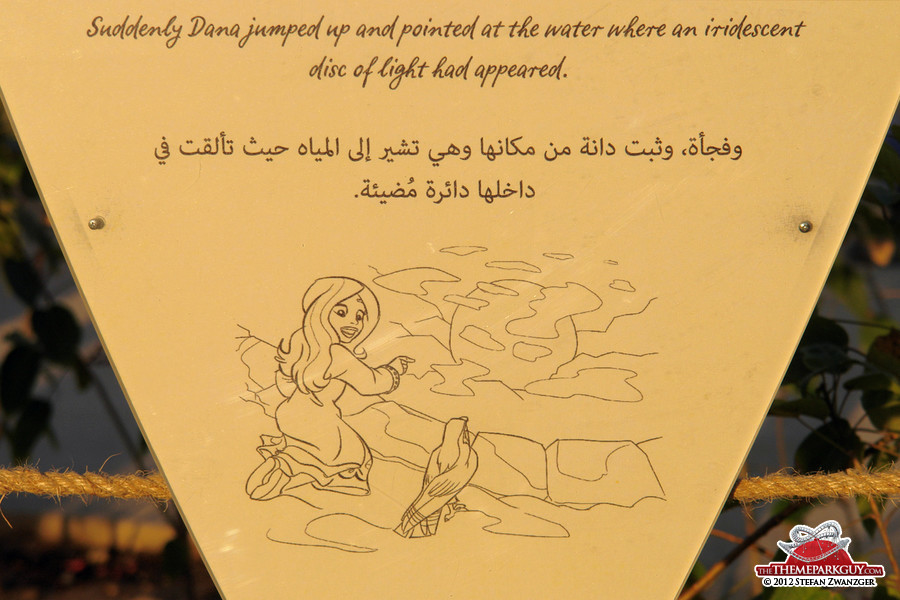 Suddenly Dana jumped up and pointed at the water where an iridescent
disc of light had appeared.
وفجأة، وثبت دانة من مكانها وهي تشير إلى المياه حيث تألقت في
داخلها دائرة مُضيئة.
THETHEMEPARKGUY.COM
© 2012 STEFAN ZWANZGER